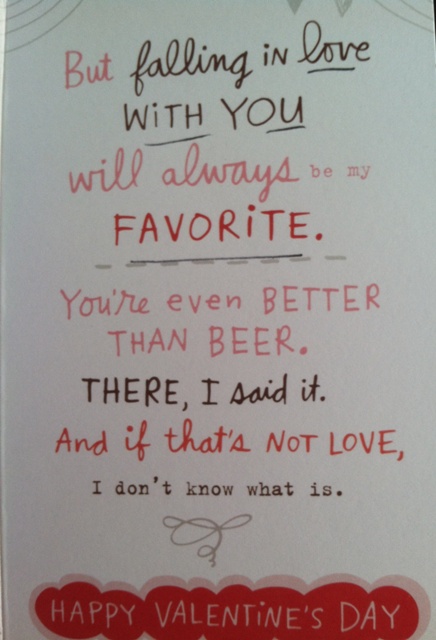 But falling in love
WITH YOU
will always be my
FAVORITE.
You're even BETTER
THAN BEER.
THERE, I said it.
And if that's NOT LOVE,
I don't know what is.
HAPPY VALENTINE'S DAY